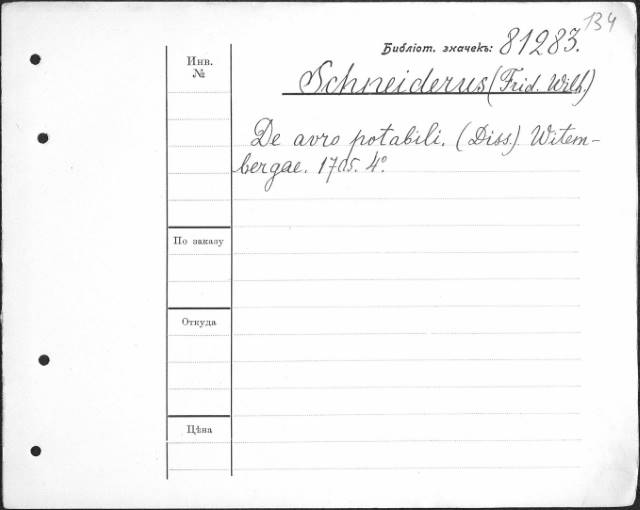 134
Библіот. значекъ: 81283.
Инв. №
Schneiderus (Frid. Wilh.)
De avro potabili. (Diss.) Witem-
bergae. 1705. 4°.
По заказу
Откуда
Цѣна